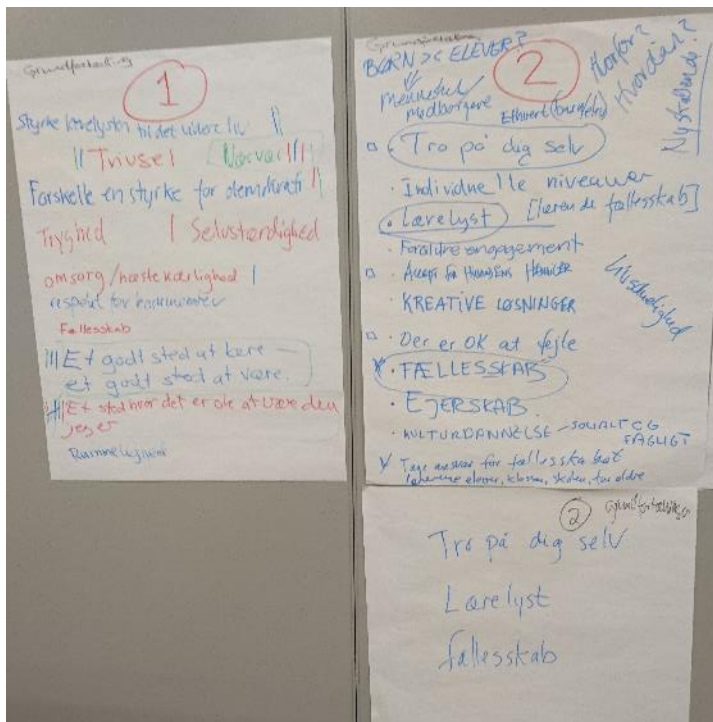 Grundfortælling
1
Styrke lærelysten til det videre liv ||
|| Trivsel Nærvær ||||
Forskelle en styrke for demokrati ||
Tryghed | Selvstændighed
omsorg / næstekærlighed |
respekt for hinanden
Fællesskab
||| Et godt sted at lære –
et godt sted at være.
Et sted hvor det er ok at være den
jeg er
Rummelighed
BØRN >< ELEVER?
2
Hvorfor?
Hvordan?
Nysgerrighed
Mennesket
Medborgere
Tro på dig selv
Individuelle niveauer
Lærelyst [lærende fællesskab]
Forældreengagement
KREATIVE LØSNINGER
Der er OK at fejle
FÆLLESSKAB
EJERSKAB
KULTURDANNELSE – SOCIALT OG
FAGLIGT
Tage ansvar for fællesskabet
lærerne, elever, klassen, skolen, forældre
2
Tro på dig selv
Lærelyst
fællesskab